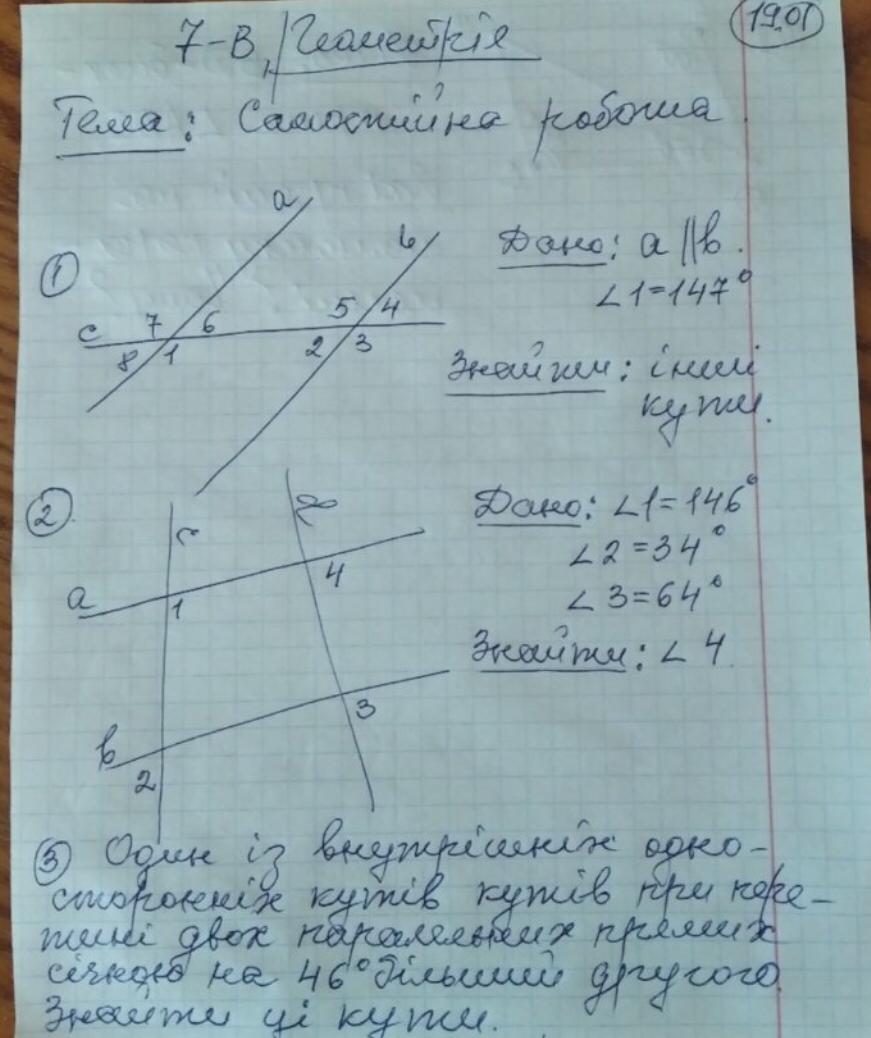 7-В, Геометрія
19.01
Тема: Самостійна робота
①
a
b
c
7 6
5 4
8 1
2 3
Дано: a || b.
∠1=147°
Знайти: інші
кути.
②
c
a
1
4
b
2
3
Дано: ∠1=146°
∠2=34°
∠3=64°
Знайти: ∠4
③ Один із внутрішніх одно-
сторонніх кутів кутів при пере-
тині двох паралельних прямих
січною на 46° більший другого.
Знайти ці кути.